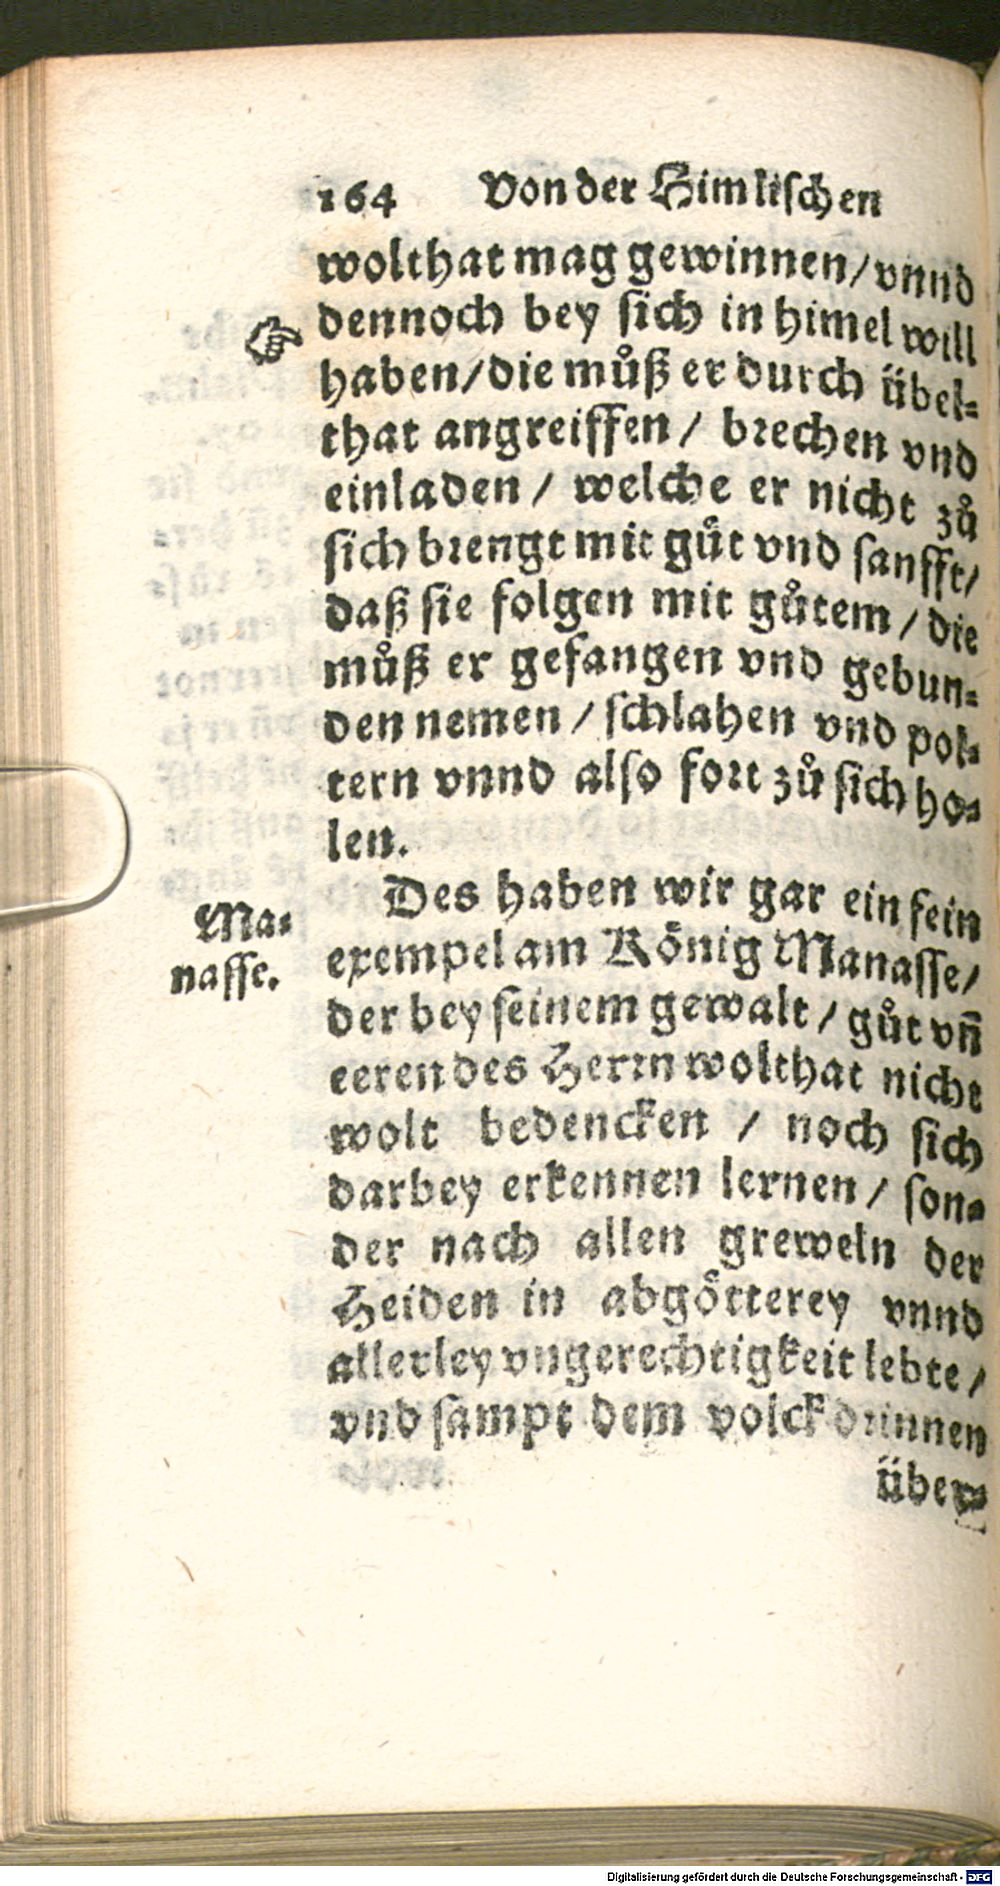 164 Von der Himlischen
wolthat mag gewinnen/ vnnd
dennoch bey sich in himel will
haben/ die můß er durch übel-
that angreiffen / brechen vnd
einladen / welche er nicht zů
sich brengt mit gůt vnd sanfft/
daß sie folgen mit gůtem / die
můß er gefangen vnd gebun-
den nemen / schlahen vnd pol-
tern vnnd also fort zů sich ho-
len.
Des haben wir gar ein fein
Ma-
nasse.
exempel am König Manasse/
der bey seinem gewalt / gůt vn̄
eeren des Herrn wolthat nicht
wolt bedencken / noch sich
darbey erkennen lernen / son-
der nach allen greweln der
Heiden in abgötterey vnnd
allerley vngerechtigkeit lebte /
vnd sampt dem volck drinnen
über-
Digitalisierung gefördert durch die Deutsche Forschungsgemeinschaft - DFG